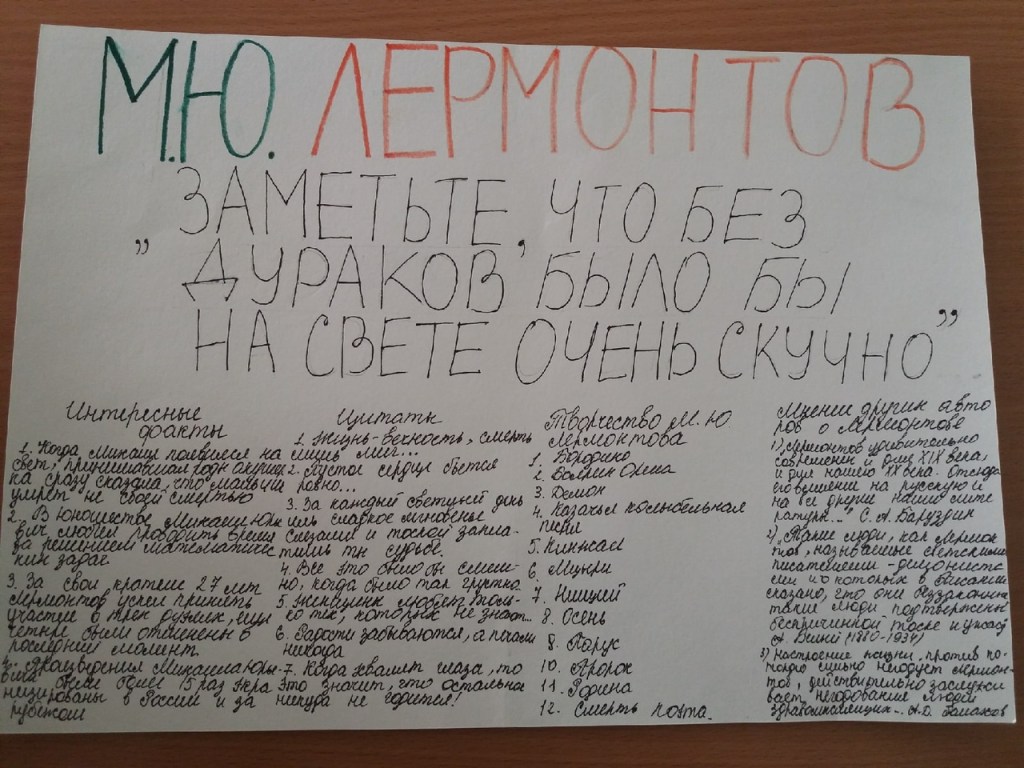 М.Ю. ЛЕРМОНТОВ
ЗАМЕТЬТЕ, ЧТО БЕЗ
„ ДУРАКОВ БЫЛО БЫ
НА СВЕТЕ ОЧЕНЬ СКУЧНО”
Интересные
факты
1. Когда Михаил появился на
свет, принимавшая роды акушер
ка сразу сказала, что мальчик
умрет не своей смертью
2. В юношестве, Михаил Юрье
вич любил проводить время
за решением математичес
ких задач.
3. За свои краткие 27 лет
Лермонтов успел принять
участие в трех дуэлях, еще
четыре были отменены в
последний момент.
4. Произведения Михаила Юрье
вича более 15 раз экра
низированы в России и за
рубежом
Цитаты
1. Жизнь-вечность, смерть
лишь миг...
2. Пустое сердце бьется
ровно...
3. За каждый светлый день
иль сладкое мгновенье
Слезами и тоской запла-
тишь ты судьбе.
4. Все это было бы смеш-
но, когда было так грустно
5. Женщины любят толь-
ко тех, которых не знают...
6. Радости забываются, а печали
никогда
7. Когда хвалят глаза, то
это значит, что остальное
никуда не годится!
Творчество М.Ю
Лермонтова
1. Бородино
2.
3. Демон
4. Казачья колыбельная
песня
5. Кинжал
6. Мцыри
7. Нищий
8. Осень
8. Парус
10. Пророк
11. Родина
12. Смерть поэта.
Мнение других авто
ров о Лермонтове
1) „Лермонтов удивительно
современен и для XIX века,
и для нашего XX века. Отсюда
его влияние на русскую и
на все другие наши лите
ратуры..." С. А. Баруздин
2) „Такие люди, как Лермон
тов, называемые светскими
писателями-
и о которых в писании
сказано, что они беззаконны
такие люди подтвержены
беспричинной тоске и ужасу
А Белый (1880-1934)
3) Настроение нации, против ко-
торого сильно негодует Лермон-
тов, действительно заслужи
вает негодование людей
здравомыслящих-. А.Д. Галахов